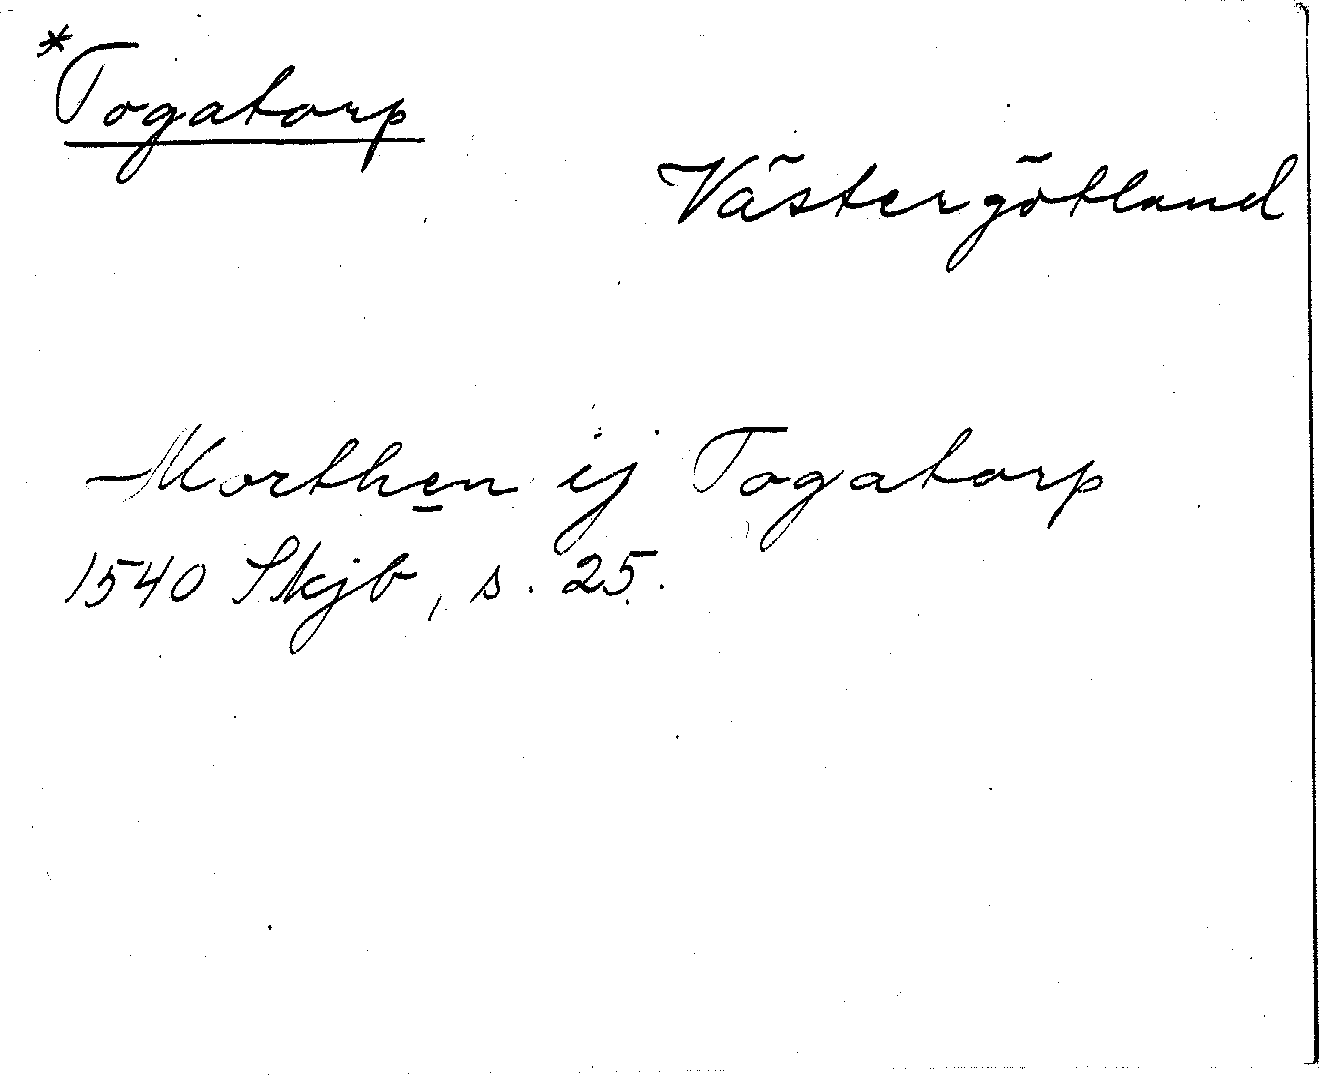 *Togatorp
Västergötland
Morthen ij Togatorp
1540 Skjb, s. 25.